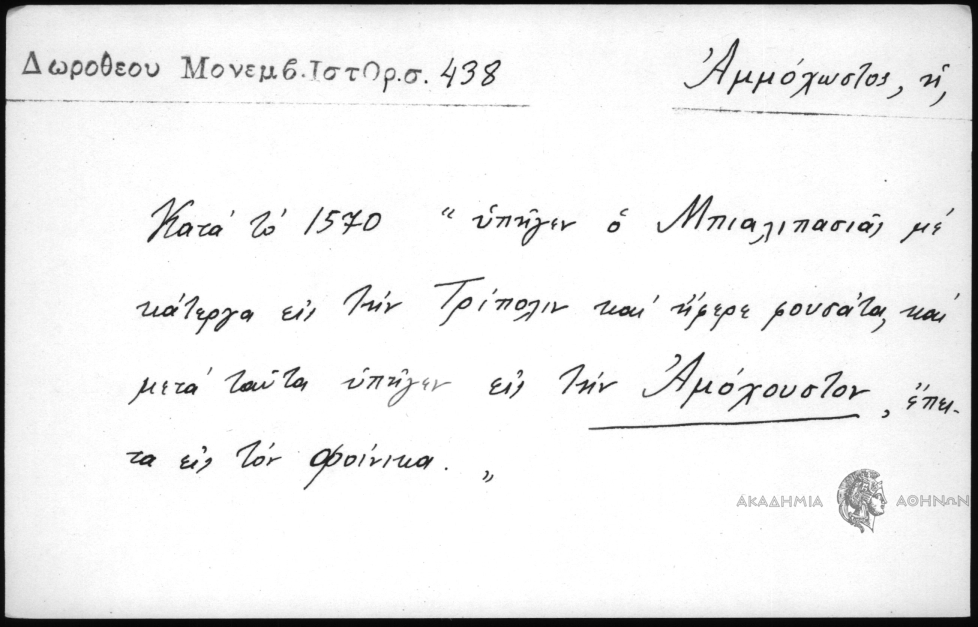 Δωροθεου Μονεμβ.Ιστορ.σ. 438
Ἀμμόχωστος, ἡ,
Κατά τό 1570 “ ὑπῆγεν ὁ Μπιαλιπασιᾶς μέ
κάτεργα εἰς τήν Τρίπολιν καί ἤφερε φουσάτα, καί
μετά ταῦτα ὑπῆγεν εἰς τήν Ἀμόχουστον, ἔπει-
τα εἰς τόν Φοίνικα. „
ΑΚΑΔΗΜΙΑ ΑΘΗΝΩΝ